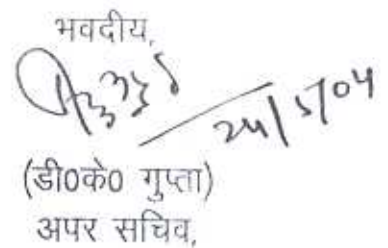 भवदीय,
24/5/04
(डी0के0 गुप्ता)
अपर सचिव,